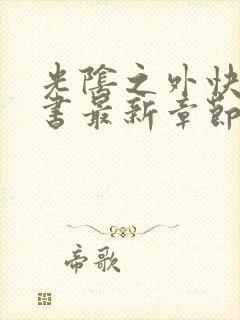 光陰之外快
書最新章節
帝歌